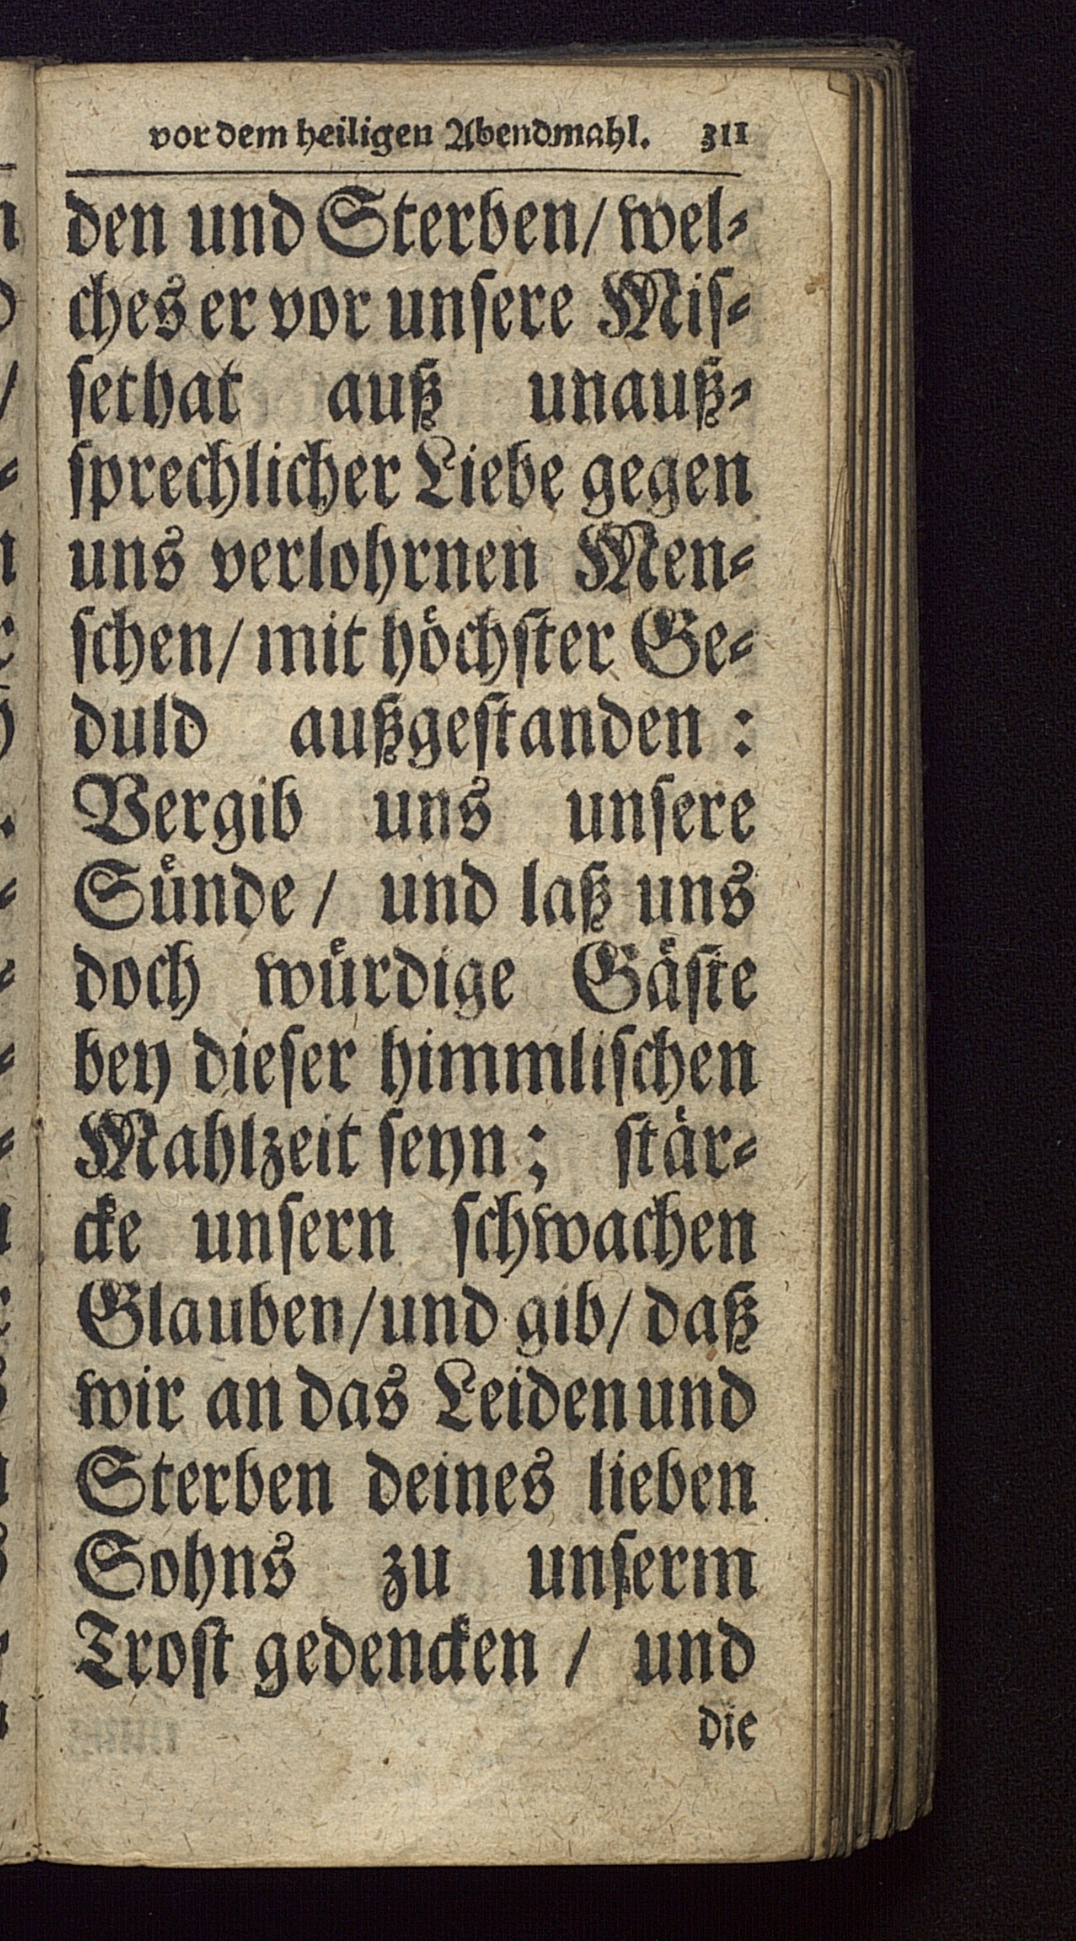 vor dem heiligen Abendmahl. 311
den und Sterben/ wel-
ches er vor unsere Mis-
sethat auß unauß-
sprechlicher Liebe gegen
uns verlohrnen Men-
schen/ mit höchster Ge-
duld außgestanden :
Vergib uns unsere
Sünde / und laß uns
doch würdige Gäste
bey dieser himmlischen
Mahlzeit seyn ; stär-
cke unsern schwachen
Glauben/und gib/ daß
wir an das Leiden und
Sterben deines lieben
Sohns zu unserm
Trost gedencken / und
die